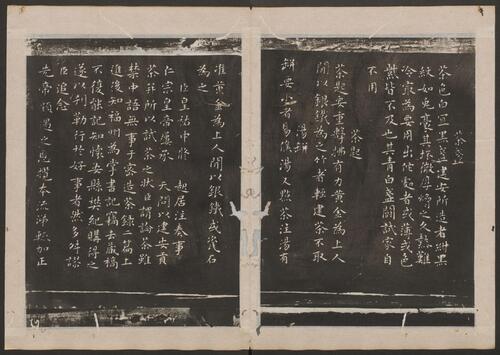 茶盞
茶色白宜黑盞建安所造者紺黑
紋如兔毫其坯微厚熁之久熱難
冷最為要用出他處者或薄或色
紫皆不及也其青白盞鬭試家自
不用
茶匙
茶匙要重擊拂有力黃金為上人
間以銀鐵為之竹者輕建茶不取
湯缾
缾要小者易候湯又點茶注湯有
准黃金為上人間以銀鐵或瓷石
為之
臣皇祐中脩 起居注奏事
仁宗皇帝屢承 天問以建安貢
茶并所以試茶之狀臣謂論茶雖
禁中語無事于密造茶錄二篇上
進後知福州為掌書記竊去藏稿
不復能記知懷安縣樊紀購得之
遂以刊勒行於好事者然多舛謬
臣追念
先帝顧遇之恩攬本流涕輒加正